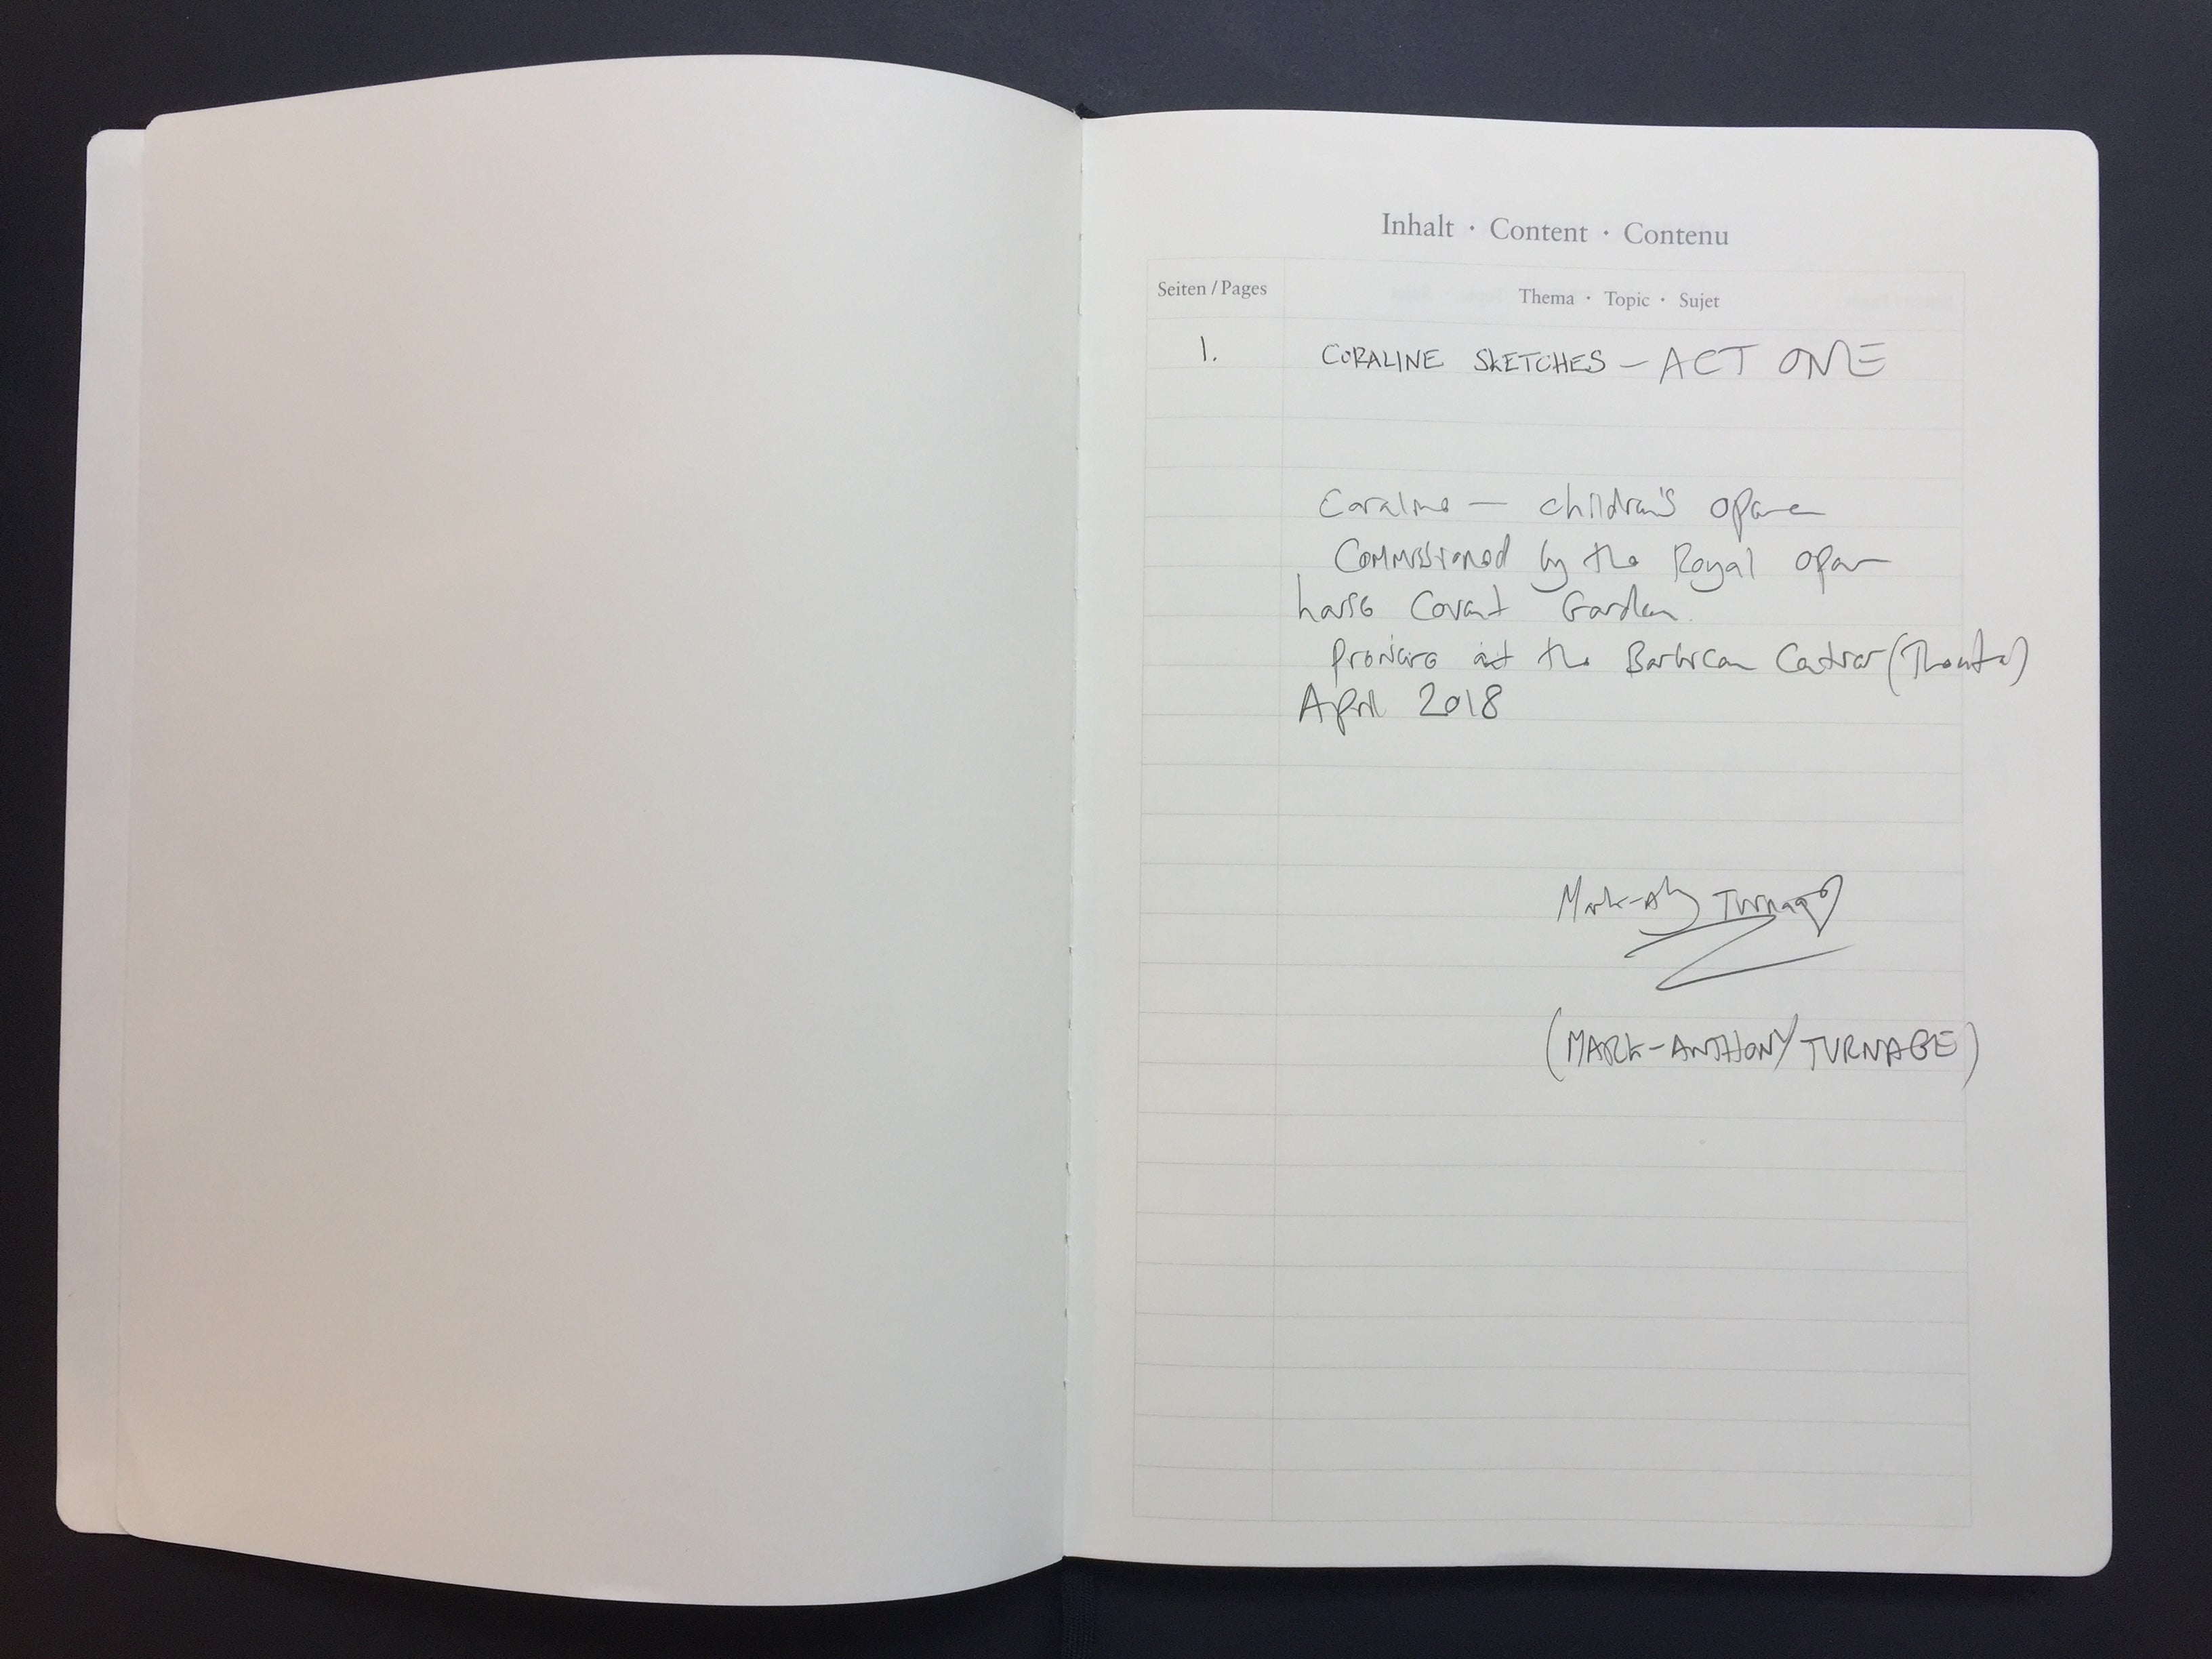 Inhalt · Content · Contenu
Seiten / Pages
Thema · Topic · Sujet
1.
CORALINE SKETCHES – ACT ONE
Coraline — children's opera
Commissioned by the Royal opera
house Covent Garden.
Première at the Barbican Centre (Theatre)
April 2018
Mark-Anthony Turnage
(MARK-ANTHONY TURNAGE)